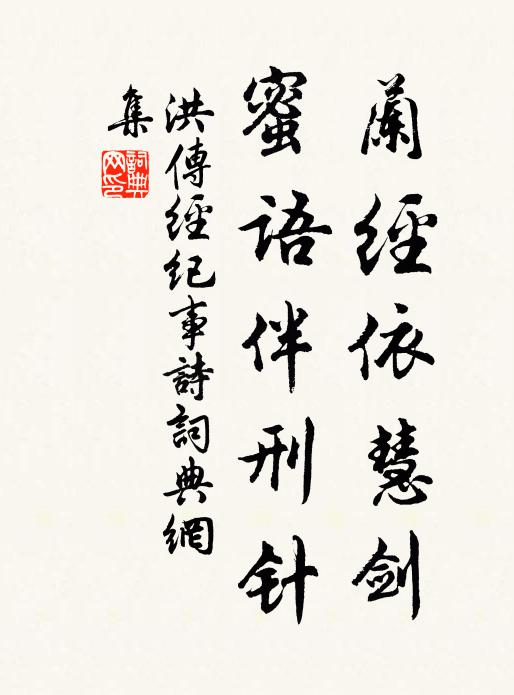 蘭經依慧劍
蜜語伴刑针
洪傳經紀事詩詞典網
集
詞典網印